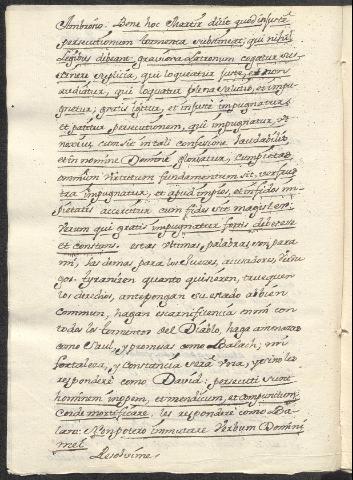 Ambrosio. Bene hoc Martir dicit quod injuste
persecutionum tormenta sustineat; qui nihil
legibus debeat, graviora latronum cogatur sus-
tinere suplicia, qui loquatur juste, et non
audiatur, qui loquatur plena salutis, et impu-
gnetur; gratis igitur, et injuste impugnatur,
et patitur persecutionem, qui impugnatur
cum sit in tali confessione laudabilis,
et in nomine Domini gloriatur, cum pietas
communium virtutum fundamentum sit, verè frus-
tra impugnatur, et apud impios, et infidos im-
pietatis accersitur cum fidei sit magister.
Verum qui gratis impugnatur fortis debet esse
et constans. estas ultimas palabras son para
mi, las demas para los Jueces, acusadores, Verdu-
gos. tyranizen quanto quisieren, truequen
los derechos, antepongan su estado al bien
commun, hagan escarnificencia en mi con
todos los tormentos del Diablo, haga amenazas
como Saul, y promesas como Balach; mi
fortaleza, y constancia será una, y sino les
responderé como David: persecuti sunt
hominem inopem, et mendicum, et compunctum
corde mortificare, les responderé como Ba-
lam: Non potero immutare Verbum Domini
mei.
Resolvime